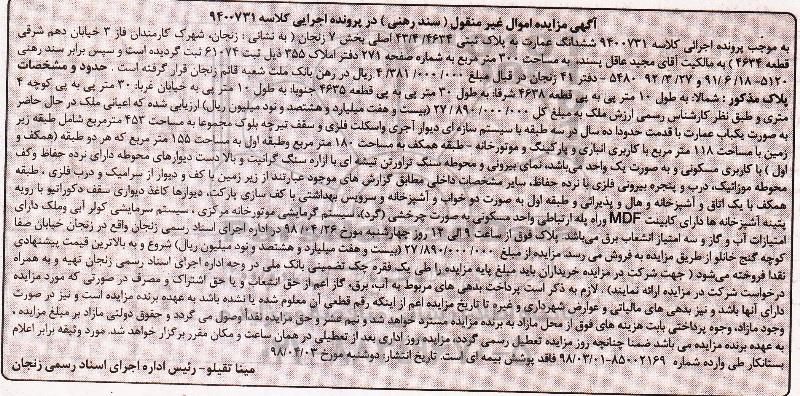 آگهی مزایده اموال غیر منقول ( سند رهنی ) در پرونده اجرایی کلاسه ۹۴۰۰۷۳۱
به موجب پرونده اجرائی کلاسه ۹۴۰۰۷۳۱ ششدانگ عمارت به پلاک ثبتی ۴۳/۴/۴۶۳۴ اصلی بخش ۷ زنجان ( به نشانی : زنجان، شهرک کارمندان فاز ۳ خیابان دهم شرقی
قطعه ۴۶۳۴ ) به مالکیت آقای مجید عاقل پسند، به مساحت ۳۰۰ متر مربع به شماره صفحه ۲۷۱ دفتر املاک ۳۵۵ ذیل ثبت ۶۱۰۷۴ ثبت گردیده است و سپس برابر سند رهنی
۵۱۲۰-۹۱/۶/۱۸ و ۹۲/۳/۲۷ - ۵۴۸۰ دفتر ۴۱ زنجان در قبال مبلغ ۴/۳۸۱/۰۰۰/۰۰۰ ریال در رهن بانک ملت شعبه قائم زنجان قرار گرفته است . حدود و مشخصات
پلاک مذکور : شمالا: به طول ۱۰ متر پی به پی قطعه ۴۶۳۸ شرقا: به طول ۳۰ متر پی به پی قطعه ۴۶۳۵ جنوبا: به طول ۱۰ متر پی به خیابان غربا: ۳۰ متر پی به پی کوچه ۴
متری و طبق نظر کارشناس رسمی ارزش ملک به مبلغ کل ۲۷/۸۹۰/۰۰۰/۰۰۰ (بیست و هفت میلیارد و هشتصد و نود میلیون ریال) ارزیابی شده که اعیانی ملک در حال حاضر
به صورت یکباب عمارت با قدمت حدودا ده سال در سه طبقه با سیستم سازه ای دیوار آجری واسکلت فلزی و سقف تیرچه بلوک مجموعا به مساحت ۴۵۳ مترمربع شامل طبقه زیر
زمین با مساحت ۱۱۸ متر مربع با کاربری انباری و پارکینگ و موتورخانه - طبقه همکف به مساحت ۱۸۰ متر مربع وطبقه اول به مساحت ۱۵۵ متر مربع که هر دو طبقه (همکف و
اول ) با کاربری مسکونی و به صورت یک واحد می‌باشد، نمای بیرونی و محوطه سنگ تراورتن تیشه ای با ازاره سنگ گرانیت و بالا دست دیوارهای محوطه دارای نرده حفاظ وکف
محوطه موزائیک، درب و پنجره بیرونی فلزی با نرده حفاظ، سایر مشخصات داخلی مطابق گزارش های موجود عبارتند از زیر زمین با کف و دیوار از سرامیک و درب فلزی ، طبقه
همکف با یک اتاق و آشپزخانه و هال و پذیرائی و طبقه اول به صورت دو خواب و آشپزخانه و سرویس بهداشتی با کف سازی پارکت، دیوارها کاغذ دیواری سقف دکوراتیو با رویه
پتینه آشپزخانه ها دارای کابینت MDF وراه پله ارتباطی واحد مسکونی به صورت چرخشی (گرد)، سیستم گرمایشی موتورخانه مرکزی ، سیستم سرمایشی کولر آبی وملک دارای
امتیازات آب و گاز و سه امتیاز انشعاب برق می‌باشد. پلاک فوق از ساعت ۹ الی ۱۲ روز چهارشنبه مورخ ۹۸/۰۴/۲۶ در اداره اجرای اسناد رسمی زنجان واقع در زنجان خیابان صفا
کوچه گنج خانلو از طریق مزایده به فروش می رسد. مزایده از مبلغ ۲۷/۸۹۰/۰۰۰/۰۰۰ (بیست و هفت میلیارد و هشتصد و نود میلیون ریال) شروع و به بالاترین قیمت پیشنهادی
نقدا فروخته می‌شود ( جهت شرکت در مزایده خریداران باید مبلغ پایه مزایده را طی یک فقره چک تضمینی بانک ملی در وجه اداره اجرای اسناد رسمی زنجان تهیه و به همراه
درخواست شرکت در مزایده ارائه نمایند) . لازم به ذکر است پرداخت بدهی های مربوط به آب، برق، گاز اعم از حق انشعاب و یا حق اشتراک و مصرف در صورتی که مورد مزایده
دارای آنها باشد و نیز بدهی های مالیاتی و عوارض شهرداری و غیره تا تاریخ مزایده اعم از اینکه رقم قطعی آن معلوم شده یا نشده باشد به عهده برنده مزایده است و نیز در صورت
وجود مازاد، وجوه پرداختی بابت هزینه های فوق از محل مازاد به برنده مزایده مسترد خواهد شد و نیم عشر و حق مزایده نقداً وصول می گردد و حقوق دولتی مازاد بر مبلغ مزایده ،
به عهده برنده مزایده می باشد ضمنا چنانچه روز مزایده تعطیل رسمی گردد، مزایده روز اداری بعد از تعطیلی در همان ساعت و مکان مقرر برگزار خواهد شد. مورد وثیقه برابر اعلام
بستانکار طی وارده شماره ۸۵۰۰۲۱۶۹-۹۸/۰۳/۰۱ فاقد پوشش بیمه ای است. تاریخ انتشار: دوشنبه مورخ ۹۸/۰۴/۰۳
مینا تقیلو - رئیس اداره اجرای اسناد رسمی زنجان